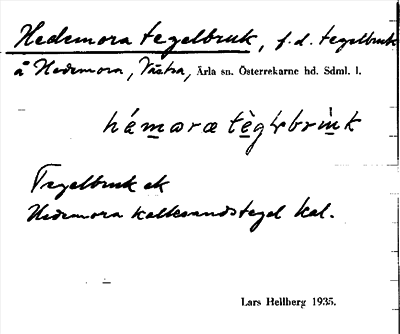 Hedemora tegelbruk, f.d. tegelbruk
å Hedemora, Västra, Ärla sn. Österrekarne hd. Sdml. l.
hámoræ tèglbrùk
Tegelbruk ek
Hedemora kalksandstegel kal.
Lars Hellberg 1935.